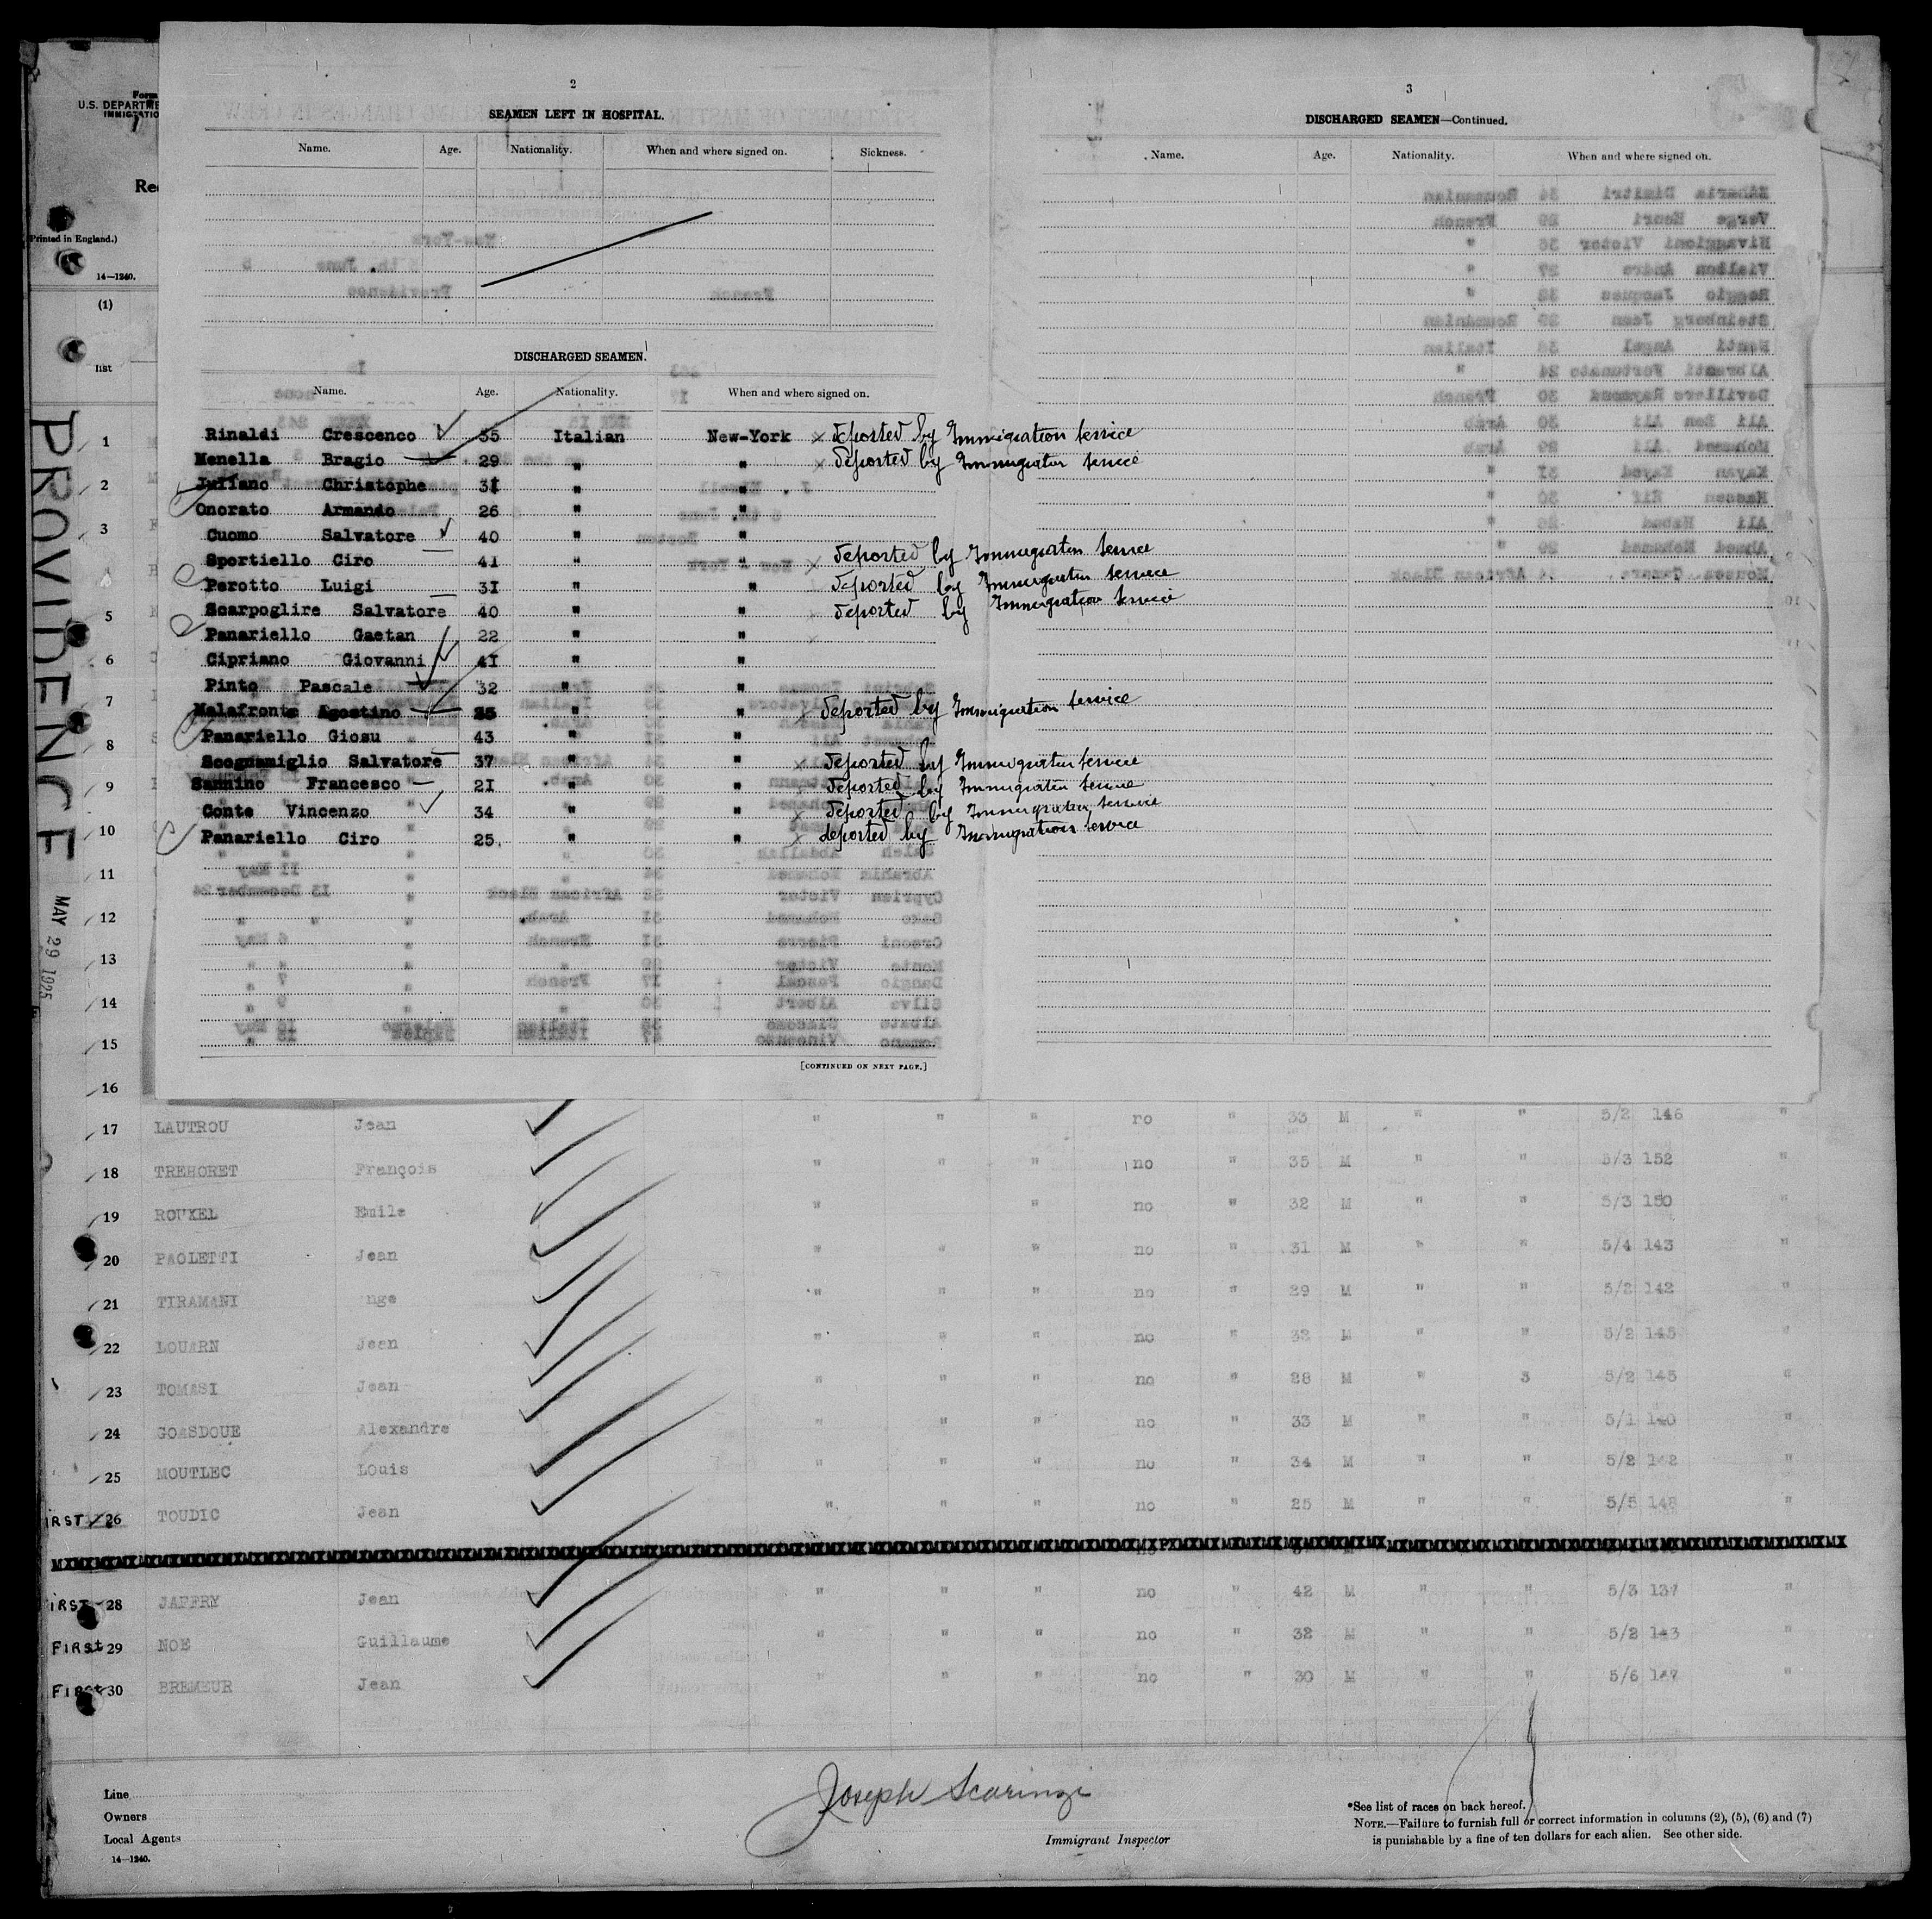 Form
U.S. DEPARTME
IMMIGRATIO
Printed in England.)
14—1240.
(1)
list
PROVIDENCE
MAY 29 1925
2
SEAMEN LEFT IN HOSPITAL.
Name. Age. Nationality. When and where signed on. Sickness.
DISCHARGED SEAMEN.
Name. Age. Nationality. When and where signed on.
Rinaldi Crescenco 35 Italian New-York x deported by Immigration Service
Menella Bragio 29 " " x deported by Immigration Service
Juliano Christophe 31 " "
Onorato Armando 26 " "
Cuomo Salvatore 40 " "
Sportiello Ciro 41 " " x deported by Immigration Service
Perotto Luigi 31 " " deported by Immigration Service
Scarpoglire Salvatore 40 " " deported by Immigration Service
Panariello Gaetan 22 " " x
Cipriano Giovanni 41 " "
Pinto Pascale 32 " "
Malafronte Agostino 35 " " x deported by Immigration Service
Panariello Giosu 43 " "
Scognamiglio Salvatore 37 " " x deported by Immigration Service
Sannino Francesco 21 " " deported by Immigration Service
Conte Vincenzo 34 " " x deported by Immigration Service
Panariello Ciro 25. " " x deported by Immigration Service
[CONTINUED ON NEXT PAGE.]
3
DISCHARGED SEAMEN—Continued.
Name. Age. Nationality. When and where signed on.
1
2
3
5
6
7
8
9
10
11
12
13
14
15
16
17 LAUTROU Jean " " " no " 33 M " " 5/2 146 "
18 TREHORET François " " " no " 35 M " " 5/3 152 "
19 ROUXEL Emile " " no " 32 M " " 5/3 150 "
20 PAOLETTI Jean " " " no " 31 M " " 5/4 143 "
21 TIRAMANI nge " " " no " 29 M " " 5/2 142 "
22 LOUARN Jean " " " no " 32 M " " 5/2 145 "
23 TOMASI Jean " " " no " 28 M " 3 5/2 145 "
24 GOASDOUE Alexandre " " " no " 33 M " " 5/1 140 "
25 MOUTLEC Louis " " " no " 34 M " " 5/2 142 "
IRST 26 TOUDIC Jean " " " no " 25 M " " 5/5 148 "
IRST 28 JAFFRY Jean " " " no " 42 M " " 5/3 137 "
FIRST 29 NOE Guillaume " " " no " 32 M " " 5/2 143 "
FIRST 30 BREMEUR Jean " " " no " 30 M " " 5/6 147 "
Line
Owners
Local Agents
14—1240.
Joseph Scaringi
Immigrant Inspector
*See list of races on back hereof.
NOTE.—Failure to furnish full or correct information in columns (2), (5), (6) and (7)
is punishable by a fine of ten dollars for each alien. See other side.